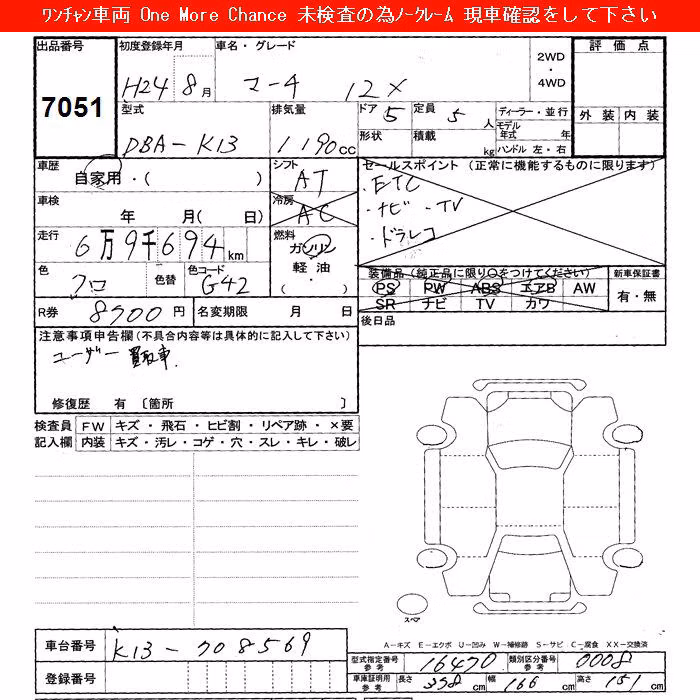 ワンチャン車両 One More Chance 未検査の為ノークレーム 現車確認をして下さい
出品番号 初度登録年月 車名・グレード 2WD・4WD 評価点
7051 H24 8月 マーチ 12X
型式 排気量 ドア 5 定員 5人 ディーラー・並行 外装 内装
DBA-K13 1190cc 形状 積載 kg モデル年式 年 ハンドル 左・右
車歴 自家用・( ) シフト AT セールスポイント (正常に機能するものに限ります)
車検 年 月( 日) 冷房 AC ・ETC
・ナビ・TV
・ドラレコ
走行 6万9千694km 燃料 ガソリン 軽油・( )
色 クロ 色替 色コード G42 装備品 (純正品に限り○をつけてください) 新車保証書
PS PW ABS エアB AW 有・無
SR ナビ TV カワ
R券 8700円 名変期限 月 日 後日品
注意事項申告欄(不具合内容等は具体的に記入して下さい)
ユーザー買取車
修復歴 有 〔箇所 〕
検査員記入欄 FW キズ・飛石・ヒビ割・リペア跡・×要
内装 キズ・汚レ・コゲ・穴・スレ・キレ・破レ
スペア
A-キズ E-エクボ U-凹み W-補修跡 S-サビ C-腐食 XX-交換済
車台番号 K13-708569
型式指定番号 参考 16470 類別区分番号 参考 0008
登録番号 車庫証明用 参考 長さ 378cm 幅 166cm 高さ 151cm